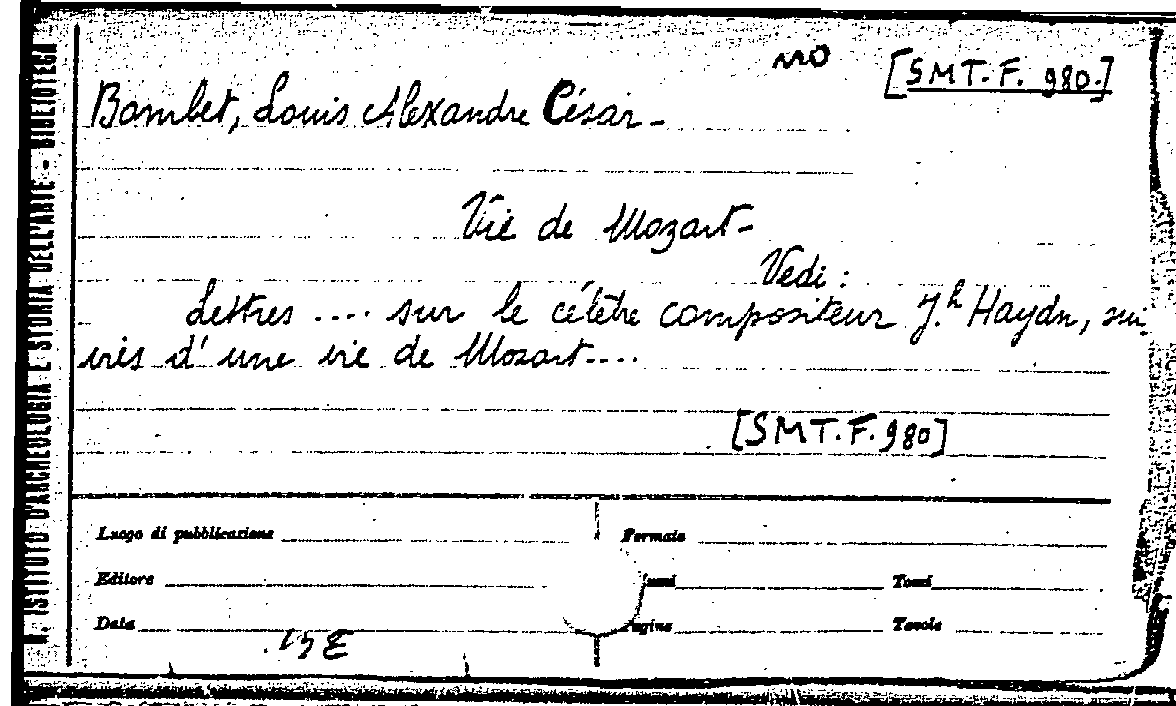 [SMT. F. 980.]
Bombet, Louis Alexandre César -
Vie de Mozart -
Vedi :
Lettres .... sur le célèbre compositeur J.h Haydn, sui-
vies d'une vie de Mozart ....
[SMT. F. 980]
Luogo di pubblicazione
Formato
Editore
Tomi
Data
Pagine
Tavole
R. ISTITUTO D'ARCHEOLOGIA E STORIA DELL'ARTE - BIBLIOTECA